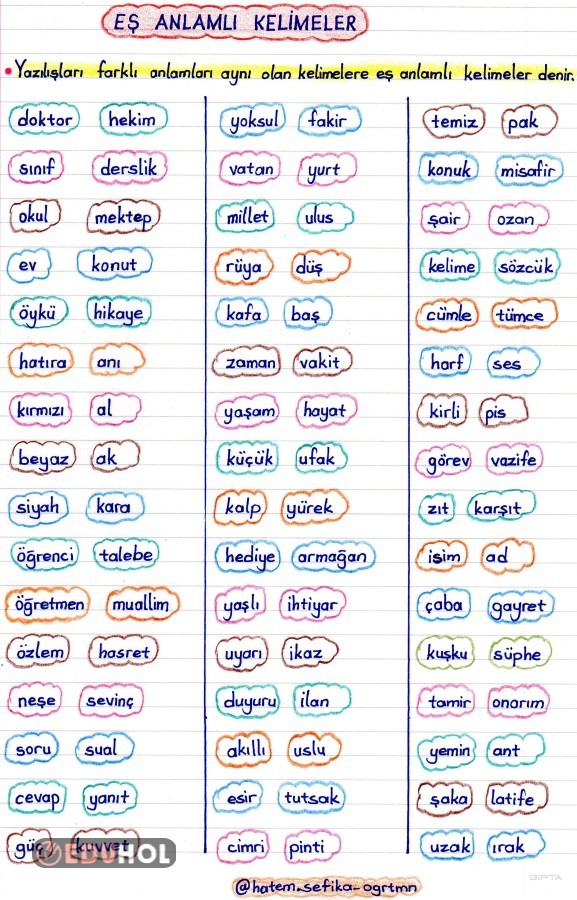 EŞ ANLAMLI KELİMELER
• Yazılışları farklı anlamları aynı olan kelimelere eş anlamlı kelimeler denir.
doktor hekim
sınıf derslik
okul mektep
ev konut
öykü hikaye
hatıra anı
kırmızı al
beyaz ak
siyah kara
öğrenci talebe
öğretmen muallim
özlem hasret
neşe sevinç
soru sual
cevap yanıt
güç kuvvet
EDUHOL
yoksul fakir
vatan yurt
millet ulus
rüya düş
kafa baş
zaman vakit
yaşam hayat
küçük ufak
kalp yürek
hediye armağan
yaşlı ihtiyar
uyarı ikaz
duyuru ilan
akıllı uslu
esir tutsak
cimri pinti
temiz pak
konuk misafir
şair ozan
kelime sözcük
cümle tümce
harf ses
kirli pis
görev vazife
zıt karşıt
isim ad
çaba gayret
kuşku süphe
tamir onarım
yemin ant
şaka latife
uzak ırak
@hatem_sefika_ogrtmn
GIPTA